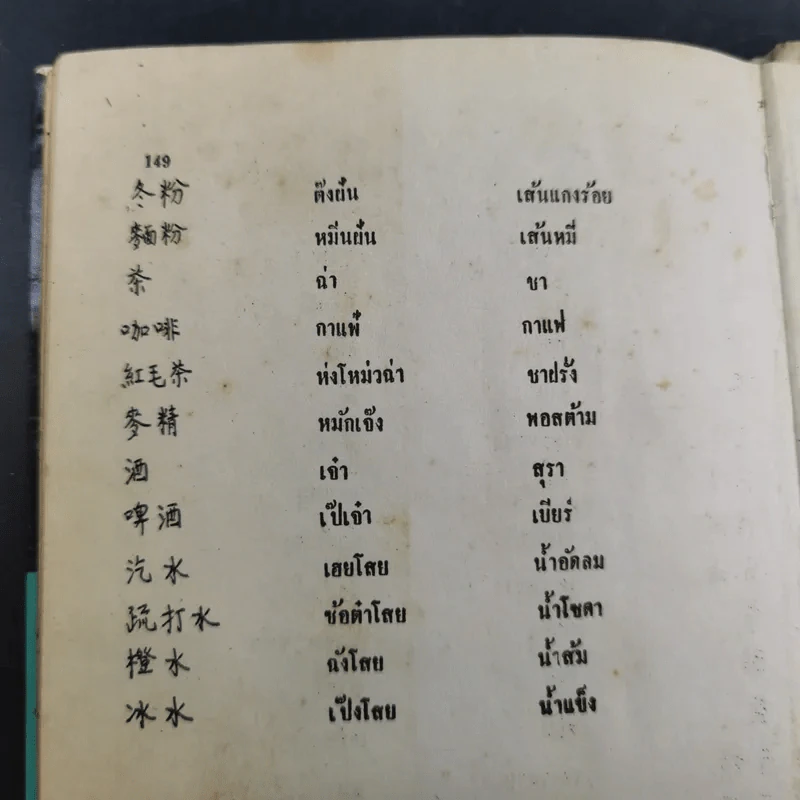 149
冬粉 ต๊งยั๋น เส้นแกงร้อย
麵粉 หมี่นยั๋น เส้นหมี่
茶 ฉ่า ชา
咖啡 กาแพ๊ กาแฟ
紅毛茶 ห่งโหม่วฉ่า ชาฝรั่ง
麥精 หมักเจ๊ง พอสต้าม
酒 เจ๋า สุรา
啤酒 เป๊เจ๋า เบียร์
汽水 เฮยโสย น้ำอัดลม
疏打水 ซ้อต๋าโสย น้ำโซดา
橙水 ฉังโสย น้ำส้ม
冰水 เป๊งโสย น้ำแข็ง